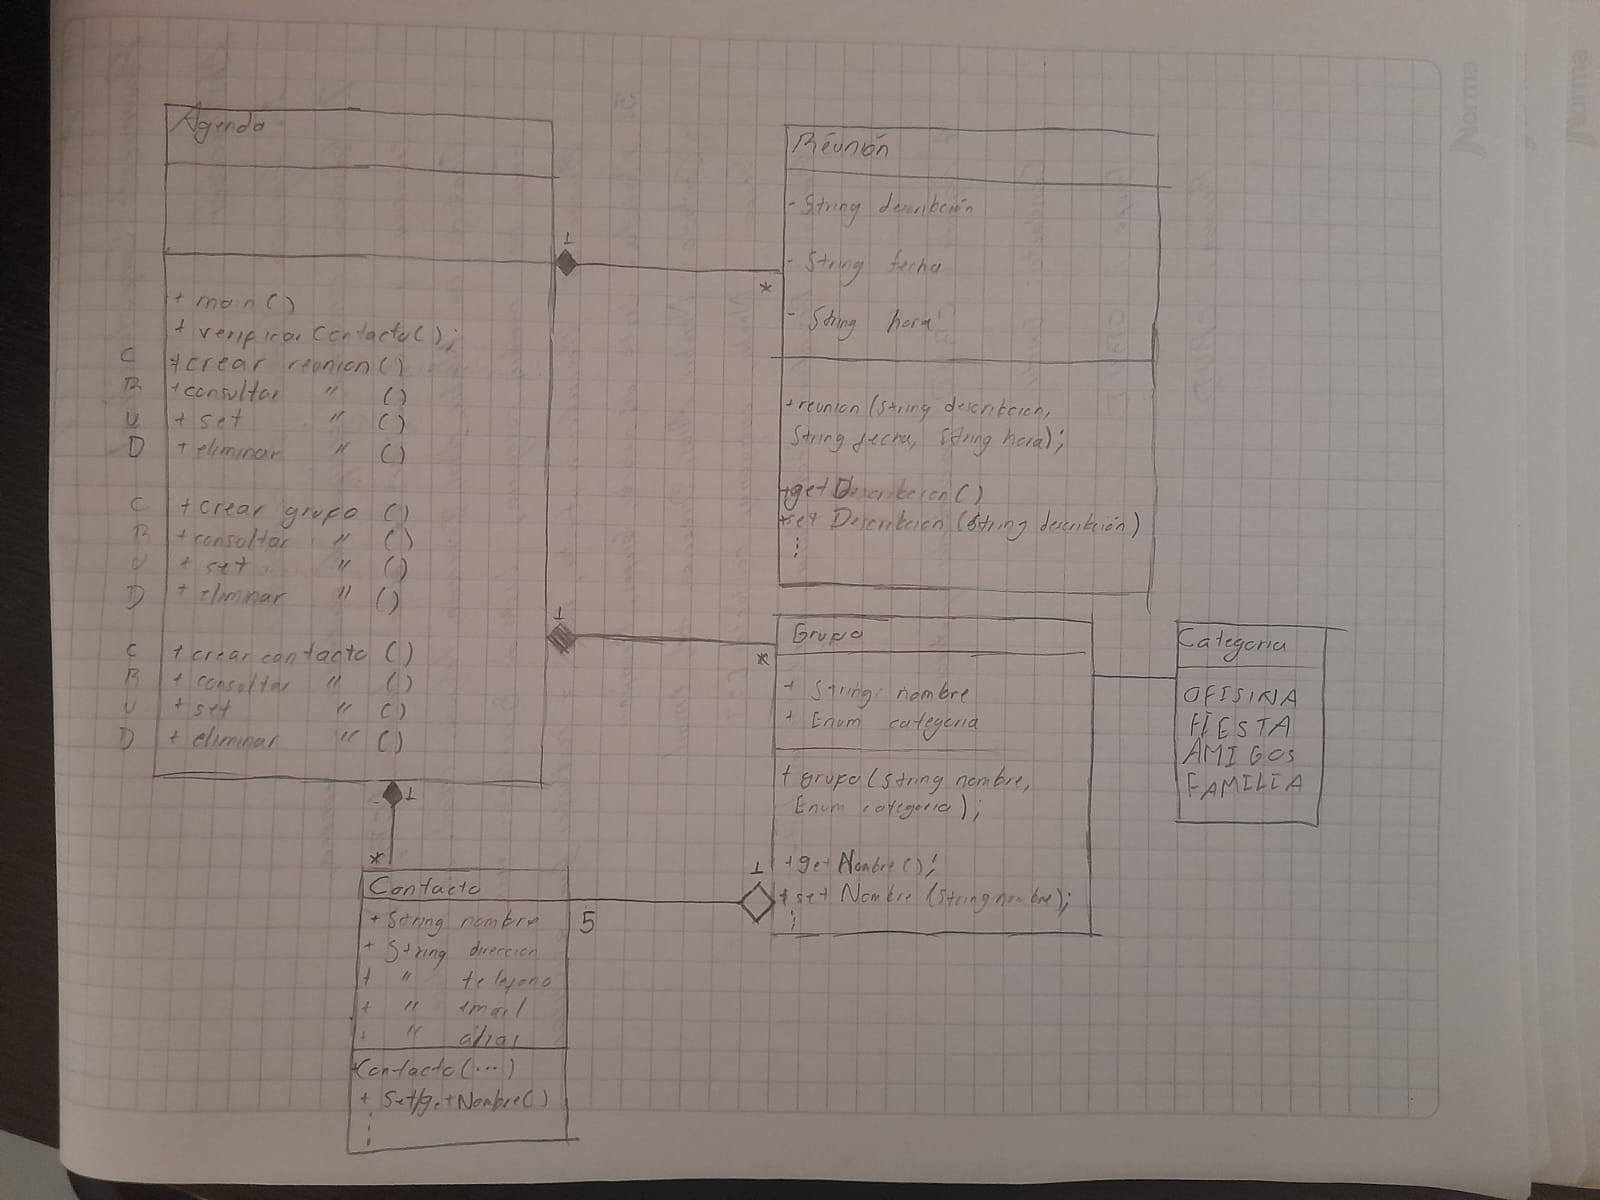 Agenda
+ main()
+ verificar Contacto();
C +crear reunion()
R +consultar " ()
U + set " ()
D + eliminar " ()
C + crear grupo ()
R + consultar " ()
U + set " ()
D + eliminar " ()
C + crear contacto ()
R + consultar " ()
U + set " ()
D + eliminar " ()
1
*
Reunión
- String describción
- String fecha
- String hora
+reunion (String describcion,
String fecha, String hora);
+get Describcion()
+set Describcion (String describción)
⋮
1
*
Grupo
+ String: nombre
+ Enum categoria
+ grupo (String nombre,
Enum categoria);
+get Nombre();
+ set Nombre (String nombre);
⋮
Categoria
OFISINA
FIESTA
AMIGOS
FAMILIA
1
*
Contacto
+ String nombre
+ String direccion
+ " telefono
+ " email
+ " alias
+Contacto(...)
+ Set/getNombre()
⋮
5
1
Norma
Norma